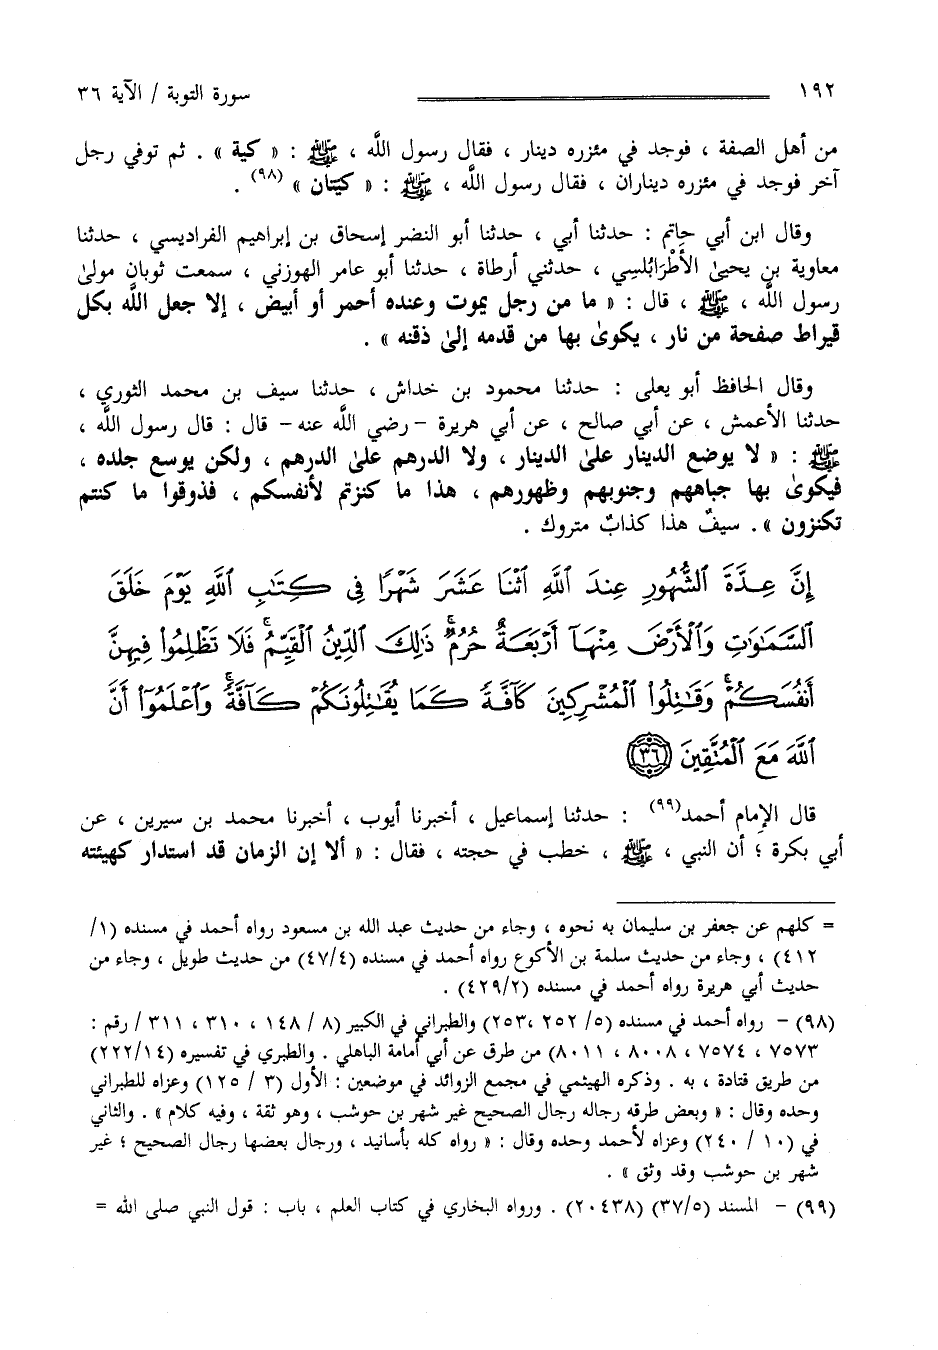 ١٩٢
سورة التوبة / الآية ٣٦
من أهل الصفة ، فوجد في مئزره دينار ، فقال رسول اللَّه ، ﷺ : « كية » . ثم توفي رجل
آخر فوجد في مئزره ديناران ، فقال رسول اللَّه ، ﷺ : « كيتان » (٩٨) .
وقال ابن أبي حاتم : حدثنا أبي ، حدثنا أبو النضر إسحاق بن إبراهيم الفراديسي ، حدثنا
معاوية بن يحيىٰ الأَطْرَابُلسِي ، حدثني أرطاة ، حدثنا أبو عامر الهوزني ، سمعت ثوبان مولىٰ
رسول اللَّه ، ﷺ ، قال : « ما من رجل يموت وعنده أحمر أو أبيض ، إلا جعل اللَّه بكل
قيراط صفحة من نار ، يكوىٰ بها من قدمه إلىٰ ذقنه » .
وقال الحافظ أبو يعلى : حدثنا محمود بن خداش ، حدثنا سيف بن محمد الثوري ،
حدثنا الأعمش ، عن أبي صالح ، عن أبي هريرة – رضي اللَّه عنه – قال : قال رسول اللَّه ،
ﷺ : « لا يوضع الدينار علىٰ الدينار ، ولا الدرهم علىٰ الدرهم ، ولكن يوسع جلده ،
فيكوىٰ بها جباههم وجنوبهم وظهورهم ، هذا ما كنزتم لأنفسكم ، فذوقوا ما كنتم
تكنزون » . سيفٌ هذا كذابٌ متروك .
إِنَّ عِدَّةَ ٱلشُّهُورِ عِندَ ٱللَّهِ ٱثْنَا عَشَرَ شَهْرًا فِى كِتَٰبِ ٱللَّهِ يَوْمَ خَلَقَ
ٱلسَّمَٰوَٰتِ وَٱلْأَرْضَ مِنْهَآ أَرْبَعَةٌ حُرُمٌۚ ذَٰلِكَ ٱلدِّينُ ٱلْقَيِّمُۚ فَلَا تَظْلِمُوا۟ فِيهِنَّ
أَنفُسَكُمْۚ وَقَٰتِلُوا۟ ٱلْمُشْرِكِينَ كَآفَّةً كَمَا يُقَٰتِلُونَكُمْ كَآفَّةًۚ وَٱعْلَمُوٓا۟ أَنَّ
ٱللَّهَ مَعَ ٱلْمُتَّقِينَ ٣٦
قال الإمام أحمد(٩٩) : حدثنا إسماعيل ، أخبرنا أيوب ، أخبرنا محمد بن سيرين ، عن
أبي بكرة ؛ أن النبي ، ﷺ ، خطب في حجته ، فقال : « ألا إن الزمان قد استدار كهيئته
= كلهم عن جعفر بن سليمان به نحوه ، وجاء من حديث عبد الله بن مسعود رواه أحمد في مسنده (١/
٤١٢) ، وجاء من حديث سلمة بن الأكوع رواه أحمد في مسنده (٤٧/٤) من حديث طويل ، وجاء من
حديث أبي هريرة رواه أحمد في مسنده (٤٢٩/٢) .
(٩٨) – رواه أحمد في مسنده (٥/ ٢٥٢ ،٢٥٣) والطبراني في الكبير (٨ / ١٤٨ ، ٣١٠ ، ٣١١ / رقم :
٧٥٧٣ ، ٧٥٧٤ ، ٨٠٠٨ ، ٨٠١١) من طرق عن أبي أمامة الباهلي . والطبري في تفسيره (٢٢٢/١٤)
من طريق قتادة ، به . وذكره الهيثمي في مجمع الزوائد في موضعين : الأول (٣ / ١٢٥) وعزاه للطبراني
وحده وقال : « وبعض طرقه رجاله رجال الصحيح غير شهر بن حوشب ، وهو ثقة ، وفيه كلام » . والثاني
في (١٠ / ٢٤٠) وعزاه لأحمد وحده وقال : « رواه كله بأسانيد ، ورجال بعضها رجال الصحيح ؛ غير
شهر بن حوشب وقد وثق » .
(٩٩) – المسند (٣٧/٥) (٢٠٤٣٨) . ورواه البخاري في كتاب العلم ، باب : قول النبي صلى الله =